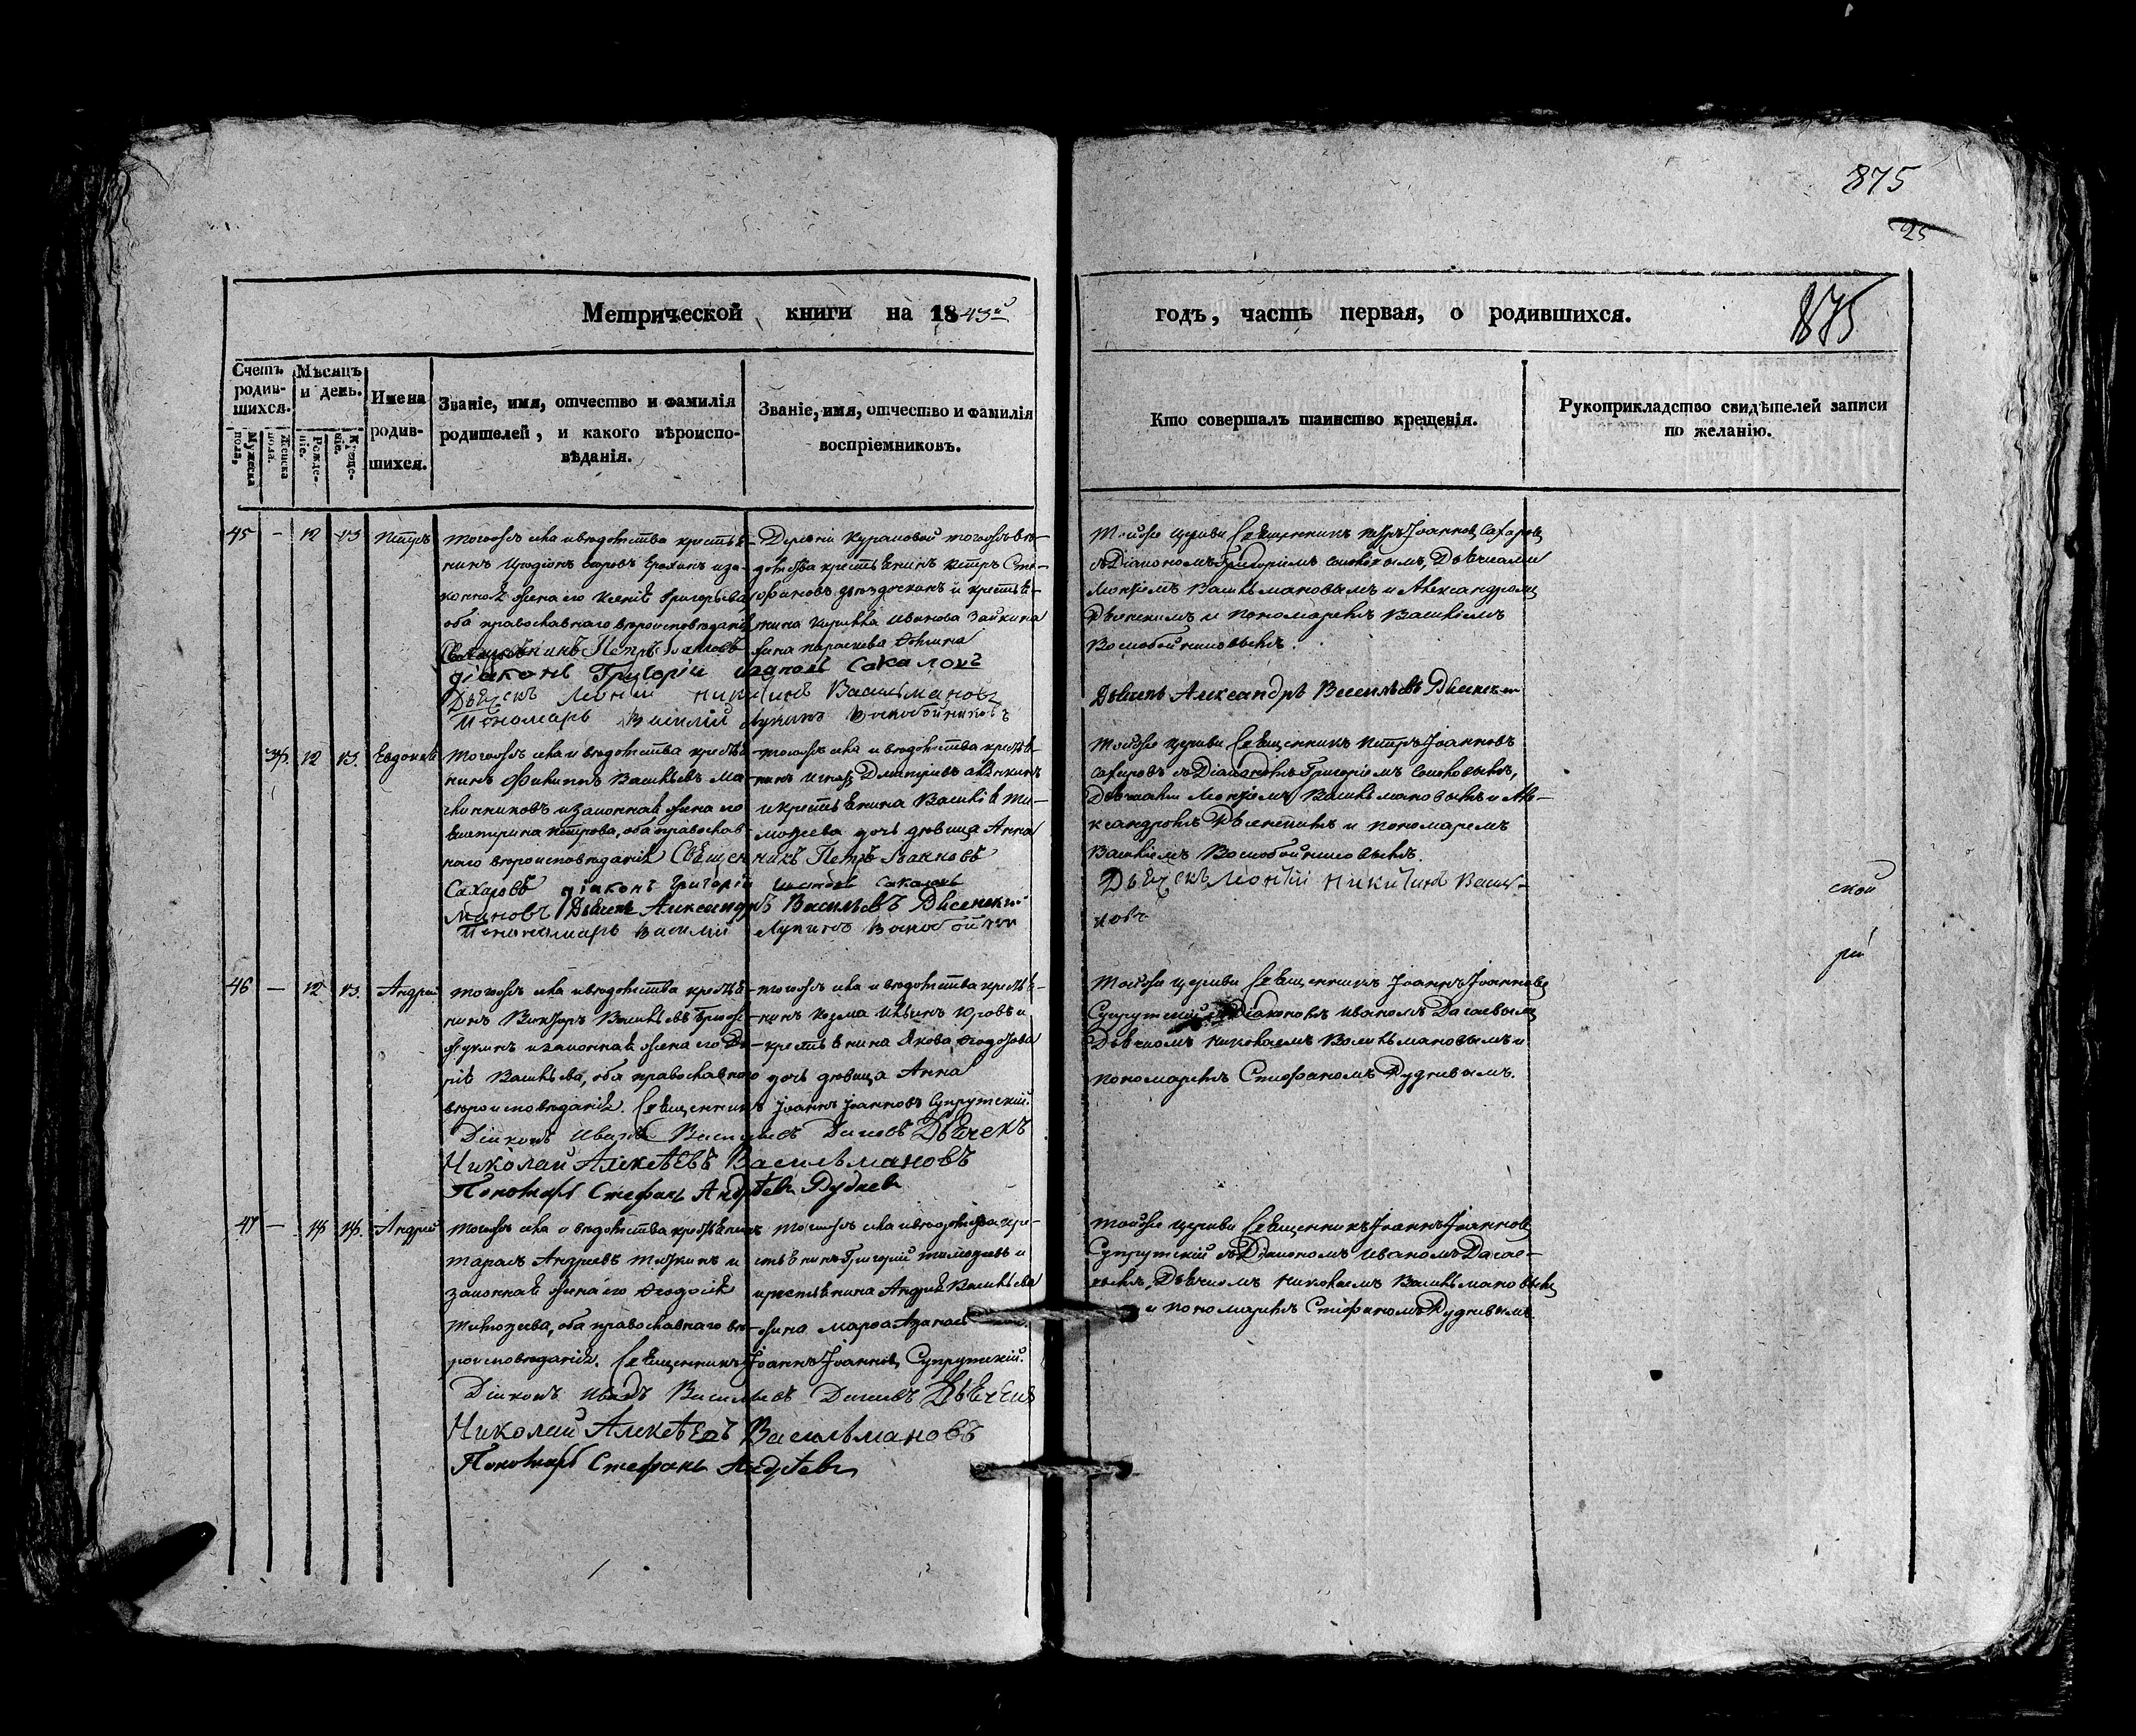 875
25
Метрической книги на 1843й
годъ, часть первая, о родившихся.
875
Счетъ родив-шихся.
Мужеска пола,
Женска пола.
Мѣсяцъ и день.
Рожде-ніе.
Креще-ніе.
Имена родив-шихся.
Званіе, имя, отчество и фамилія
родителей, и какого вѣроиспо-
вѣданія.
Званіе, имя, отчество и фамилія
воспріемниковъ.
Кто совершалъ таинство крещенія.
Рукоприкладство свидѣтелей записи
по желанію.
45 - 12 13 Петръ
тогожъ села и вѣдомства крестья-
законная жена его Григорьева
оба православнаго вѣроисповѣданія
Священникъ Петръ Іоанновъ
діаконъ Григорій Соколовъ
Дьячекъ Леонтій Никитинъ Васильмановъ
Пономарь Василій Лукинъ Воскобойниковъ
тогожъ вѣ-
домства крестьянинъ Петръ
и крестья-
нина Иванова
жена Параскева
Тойже церкви Священникъ Петръ Іоанновъ Сахаровъ
съ Діакономъ Григоріемъ Соколовымъ, Дьячками
Леонтіемъ Васильмановымъ и Александромъ
и пономаремъ Василіемъ
Воскобойниковымъ.
Дьячекъ Александръ Васильевъ
34. 12 13. Евдокія
тогожъ села и вѣдомства крестья-
нинъ Филиппъ Васильевъ
и законная жена его
Екатерина Петрова, оба православ-
наго вѣроисповѣданія Священникъ Петръ Іоанновъ
Сахаровъ діаконъ Григорій Соколовъ
Дьячекъ Александръ Васильевъ
Пономарь Василій Лукинъ
тогожъ села и вѣдомства крестья-
нинъ Игнатъ Дмитріевъ
и крестьянина Василія Ти-
моѳеева дочь дѣвица Анна
Тойже церкви Священникъ Петръ Іоанновъ
Сахаровъ съ Діакономъ Григоріемъ Соколовымъ,
Дьячками Леонтіемъ Васильмановымъ и Але-
ксандромъ и пономаремъ
Василіемъ Воскобойниковымъ.
Дьячекъ Леонтій Никитинъ Василь-
новъ
ской
рій
46 - 12 13. Андрей
тогожъ села и вѣдомства крестья-
нинъ Викторъ Васильевъ
и законная жена его Да-
рія Васильева, оба православнаго
вѣроисповѣданія. Священникъ Іоаннъ Іоанновъ Супрутскій.
Діаконъ Иванъ Васильевъ Дагаевъ Дьячекъ
Николай Алексѣевъ Васильмановъ
Пономарь Стефанъ Андрѣевъ Рудневъ
тогожъ села и вѣдомства крестья-
нинъ Козма и
крестьянина Якова Ѳедорова
дочь дѣвица Анна
Тойже церкви Священникъ Іоаннъ Іоанновъ
Супрутскій съ Діакономъ Иваномъ Дагаевымъ
Дьячкомъ Николаемъ Васильмановымъ и
пономаремъ Стефаномъ Рудневымъ.
47 - 14 14. Андрей
тогожъ села и вѣдомства крестьянинъ
Тарасъ Андреевъ и
законная жена его Ѳедосія
Тимоѳеева, оба православнаго вѣ-
роисповѣданія. Священникъ Іоаннъ Іоанновъ Супрутскій.
Діаконъ Иванъ Васильевъ Дагаевъ Дьячекъ
Николай Алексѣевъ Васильмановъ
Пономарь Стефанъ Андрѣевъ
тогожъ села и вѣдомства кре-
стьянинъ Григорій Тимоѳеевъ и
крестьянина Андрея Васильева
жена Марѳа
Тойже церкви Священникъ Іоаннъ Іоанновъ
Супрутскій съ Діакономъ Иваномъ Дагае-
вымъ, Дьячкомъ Николаемъ Васильмановымъ
и пономаремъ Стефаномъ Рудневымъ.